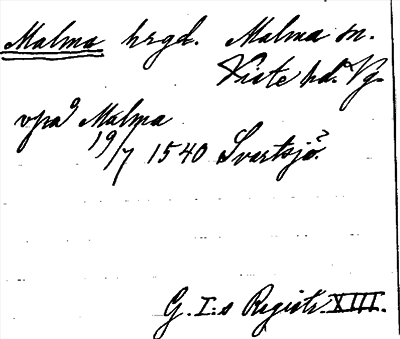 Malma hrgd. Malma sn.
Viste hd. Vg.
vpå Malma
19/7 1540 Svartsjö?
G. I:s Registr. XIII.